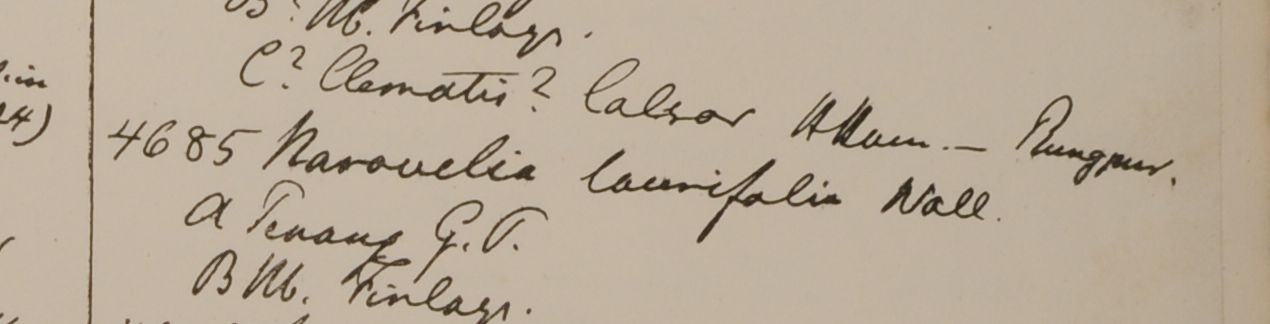 B? Hb. Finlays.
C? Clematis? Calsor HHam. — Rungpur.
4685 Naravelia laurifolia Wall.
A Penang G.P.
B Hb. Finlays.
in
24)